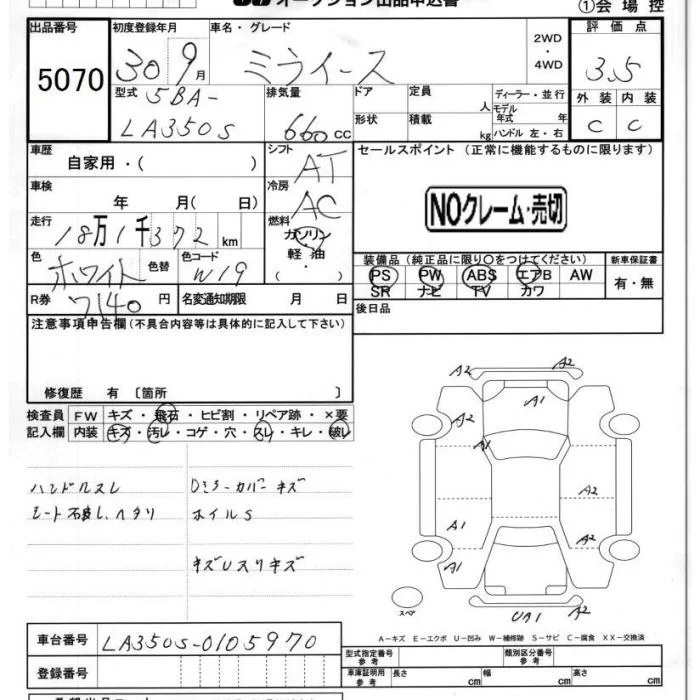 オークション出品申込書
①会場控
出品番号 初度登録年月 車名・グレード 2WD ・ 4WD 評価点
5070 30 9月 ミライース 3.5
型式 5BA-LA350S 排気量 660cc ドア 形状 定員 人 積載 kg ディーラー・並行 モデル年式 年 ハンドル 左・右 外装 C 内装 C
車歴 自家用・( ) シフト AT セールスポイント (正常に機能するものに限ります)
車検 年 月( 日) 冷房 AC
NOクレーム・売切
走行 18万1千372km 燃料 ガソリン 軽油 ・( )
色 ホワイト 色替 色コード W19 装備品 (純正品に限り○をつけてください) 新車保証書
PS PW ABS エアB AW 有・無
SR ナビ TV カワ
R券 7140円 名変通知期限 月 日 後日品
注意事項申告欄 (不具合内容等は具体的に記入して下さい)
修復歴 有 〔箇所 〕
検査員 FW キズ・飛石・ヒビ割・リペア跡・×要
記入欄 内装 キズ・汚レ・コゲ・穴・スレ・キレ・破レ
ハンドルスレ Dミラーカバーキズ
ホイルS
A2 A2
A1
A2
A1
A2
A1 A2
A1
UA1 A2
スペア
A-キズ E-エクボ U-凹み W-補修跡 S-サビ C-腐食 XX-交換済
車台番号 LA350S-0105970
登録番号
型式指定番号 参考 類別区分番号 参考
車庫証明用 参考 長さ cm 幅 cm 高さ cm